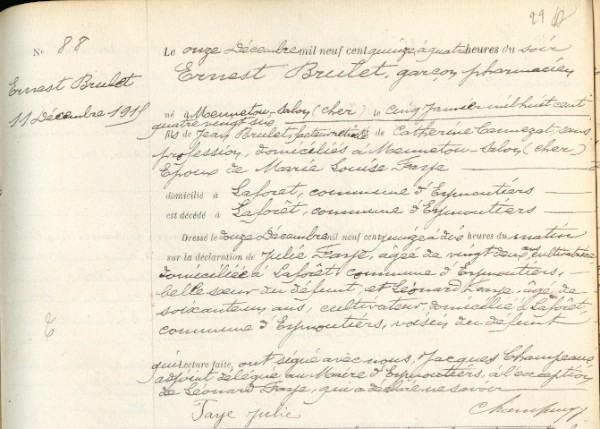 29
N° 88
Ernest Brulet
11 Décembre 1915
Le onze Décembre mil neuf cent quinze, à quatre heures du soir
Ernest Brulet, garçon pharmacien
né à Mennetou-Salon (Cher) le cinq Janvier mil huit cent
quatre vingt six
fils de Jean Brulet, facteur retraité & de Catherine sans
profession, domiciliés à Mennetou-Salon (Cher)
Epoux de Marie Louise Faye
domicilié à Laforêt, commune d'Eymoutiers
est décédé à Laforêt, commune d'Eymoutiers
Dressé le douze Décembre mil neuf cent quinze à dix heures du matin
sur la déclaration de Julie Faye, âgée de vingt deux ans, cultivatrice
domiciliée à Laforêt, commune d'Eymoutiers,
belle sœur du défunt, et Léonard Faye, âgé de
soixante un ans, cultivateur, domicilié à Laforêt,
commune d'Eymoutiers, voisin du défunt
qui Lecture faite, ont signé avec nous, Jacques Champeaux
adjoint délégué au Maire d'Eymoutiers, à l'exception
de Léonard Faye, qui a déclaré ne savoir
Faye Julie